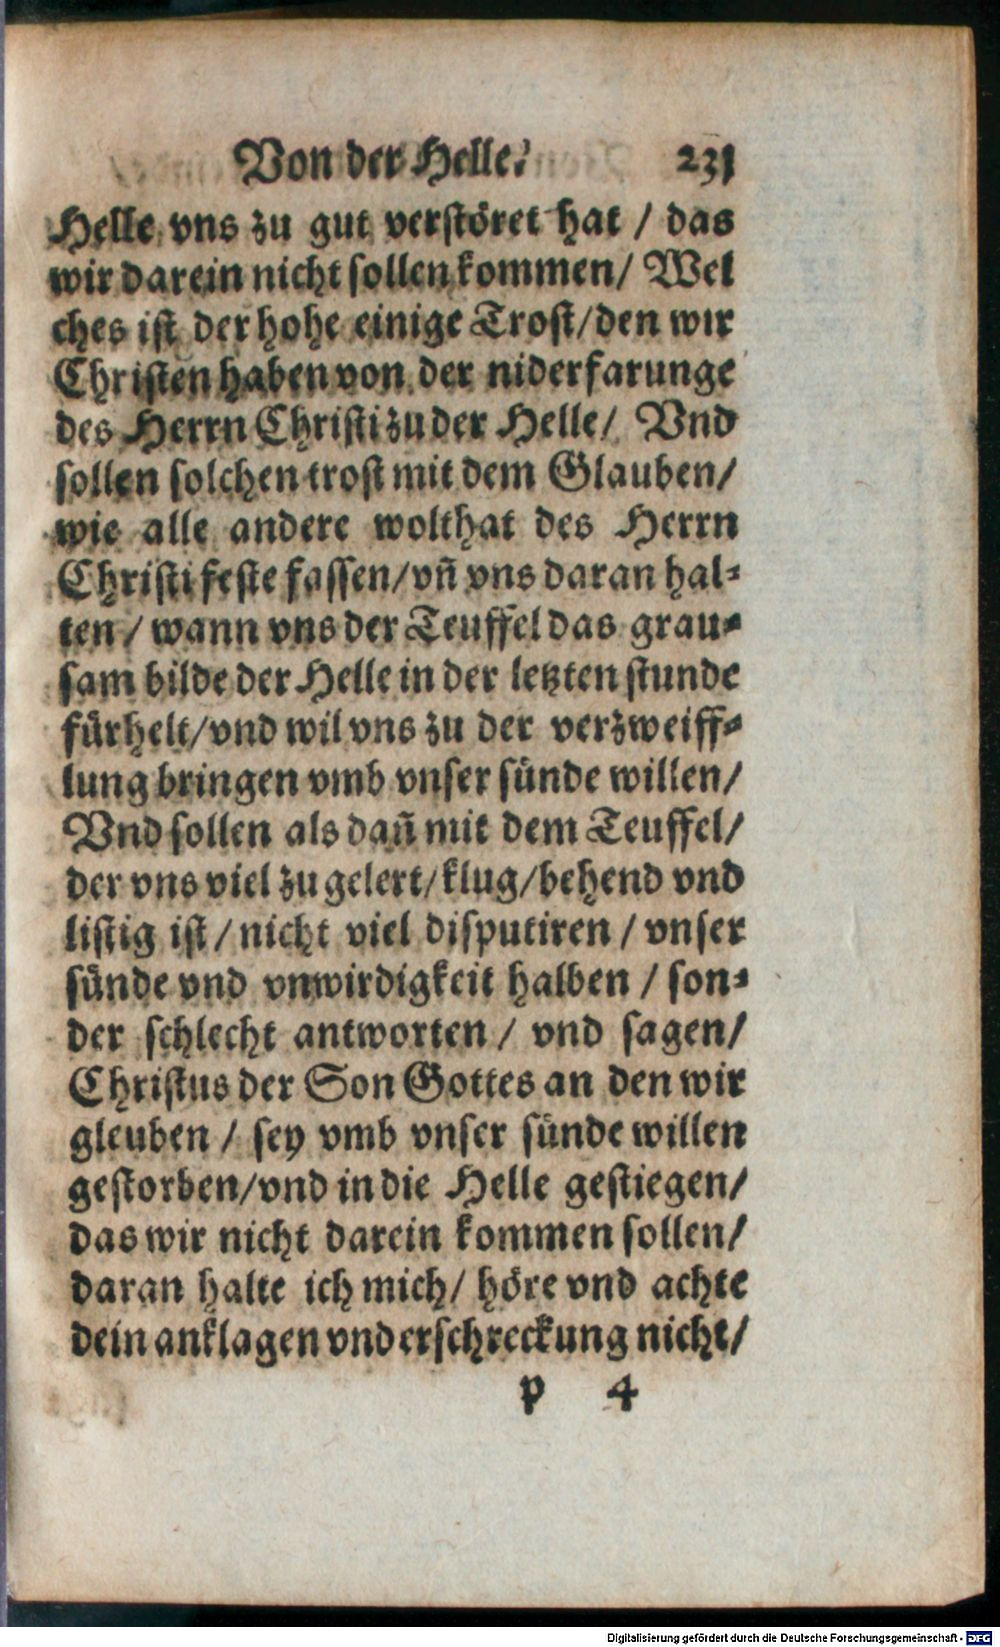 Von der Helle. 231
Helle vns zu gut verstöret hat / das
wir darein nicht sollen kommen / Wel
ches ist der hohe einige Trost / den wir
Christen haben von der niderfarunge
des Herrn Christi zu der Helle / Vnd
sollen solchen trost mit dem Glauben /
wie alle andere wolthat des Herrn
Christi feste fassen / vñ vns daran hal-
ten / wann vns der Teuffel das grau-
sam bilde der Helle in der letzten stunde
fürhelt / vnd wil vns zu der verzweiff-
lung bringen vmb vnser sünde willen /
Vnd sollen als dañ mit dem Teuffel /
der vns viel zu gelert / klug / behend vnd
listig ist / nicht viel disputiren / vnser
sünde vnd vnwirdigkeit halben / son-
der schlecht antworten / vnd sagen /
Christus der Son Gottes an den wir
gleuben / sey vmb vnser sünde willen
gestorben / vnd in die Helle gestiegen /
das wir nicht darein kommen sollen /
daran halte ich mich / höre vnd achte
dein anklagen vnd erschreckung nicht /
p 4
Digitalisierung gefördert durch die Deutsche Forschungsgemeinschaft - DFG